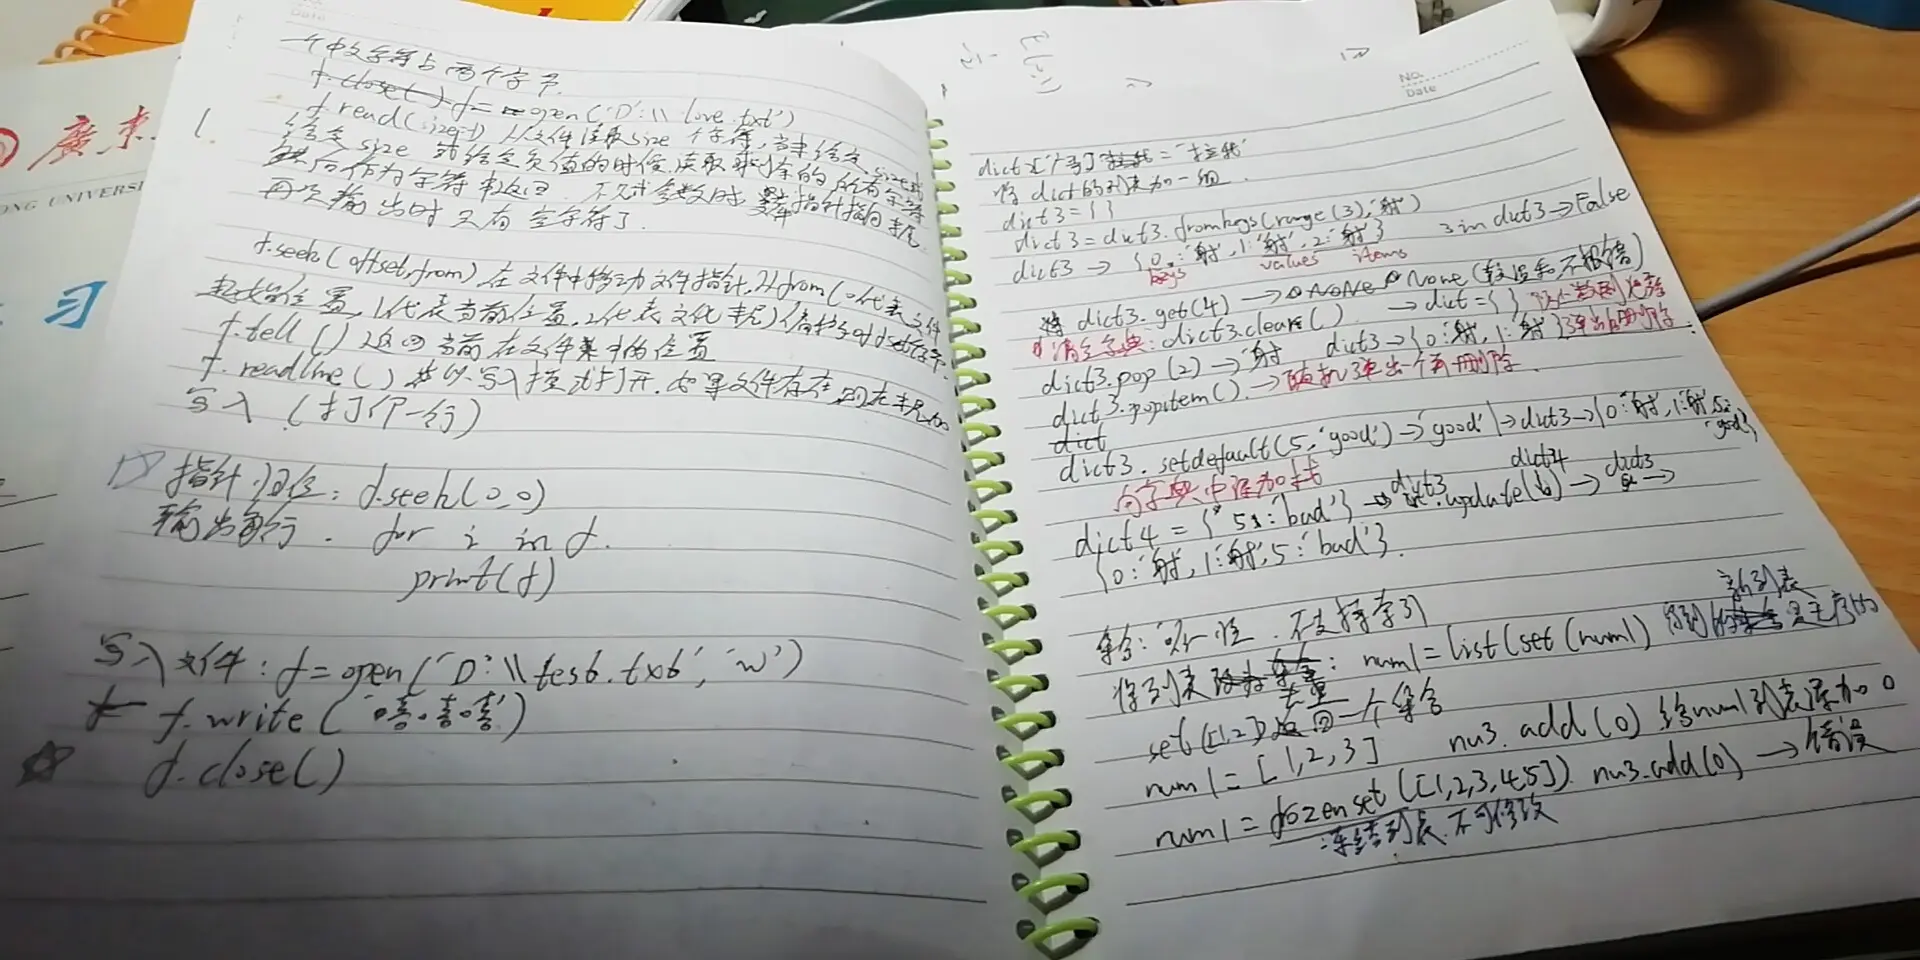 廣东
ONG UNIVERSI
习
Date
一个中文字符占两个字节.
f.close() f= open('D:\\love.txt')
f.read(size=-1) 从文件读取size个字符,当未给定size或
给定size 或给定负值的时候,读取剩余的所有字符
然后作为字符串返回. 不写参数时 指针指向末尾
再次输出时只有空字符了.
f.seek(offset,from) 在文件中移动文件指针,从from(0代表文件
起始位置,1代表当前位置,2代表文件末尾)偏移offset个字节.
f.tell() 返回当前在文件中的位置
f.readline() 以写入模式打开,如果文件存在,则在末尾加
写入 (打印一行)
指针归位: f.seek(0,0)
输出每行. for i in f.
print(f)
写入文件: f=open('D:\\test.txt','w')
f.write('嘻嘻嘻')
☆ f.close()
No.
Date
= '拉轰'
将dict的列表加一组.
dict3={}
dict3=dict3.fromkeys(range(3),'射') 3 in dict3→False
dict3 → {0:'射',1:'射',2:'射'}
keys values items
dict3.get(4) → None (较温和不报错)
清空字典: dict3.clear() → dict={}
dict3.pop(2) → '射 dict3→{0:'射',1:'射'} 弹出即删除
dict3.popitem(). → 随机弹出一个再删除.
dict
dict3.setdefault(5,'good') → 'good' → dict3→{0:'射',1:'射',5:'good'}
向字典中添加
dict4={5:'bad'} → dict3.update(dict4) → dict3 →
{0:'射',1:'射',5:'bad'}.
集合:唯一性.不支持索引
将列表去重: num1=list(set(num1) 得到的新列表是无序的
set([1,2])返回一个集合
num1=[1,2,3] nu3.add(0) 给num1列表添加0
num1=frozenset([1,2,3,4,5]). nu3.add(0) → 错误
冻结列表.不可修改